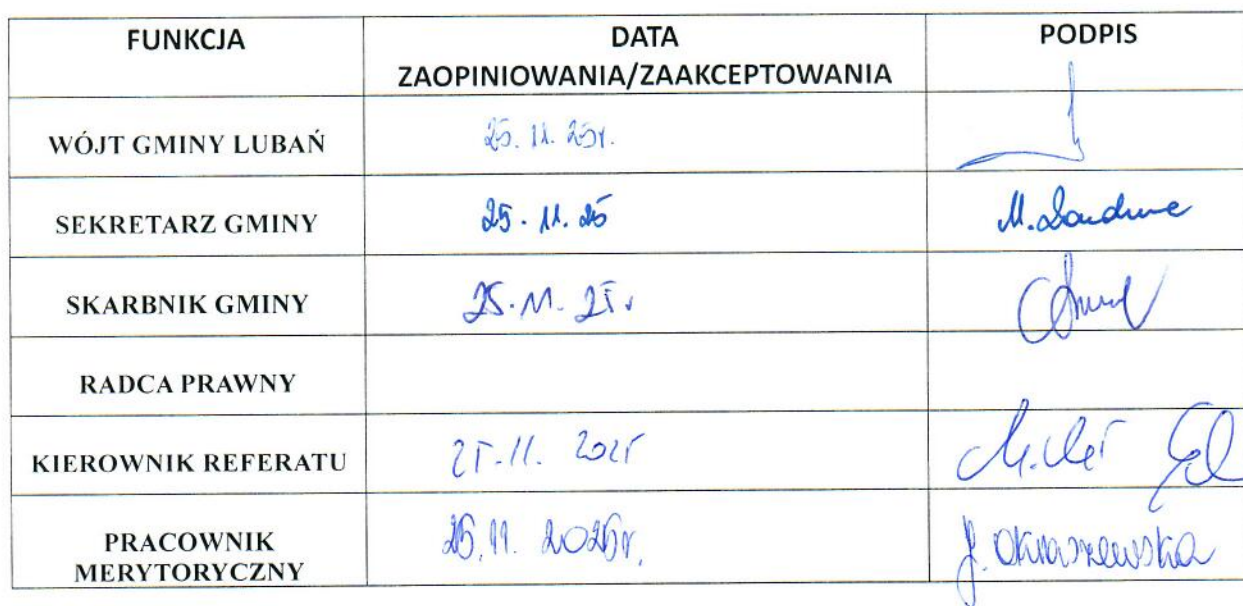 FUNKCJA DATA PODPIS
ZAOPINIOWANIA/ZAAKCEPTOWANIA
WÓJT GMINY LUBAŃ 25. 11. 25r.
SEKRETARZ GMINY 25. 11. 25 M.
SKARBNIK GMINY 25. 11. 25r
RADCA PRAWNY
KIEROWNIK REFERATU 25.11. 2025
PRACOWNIK 25.11. 2025r. J. Okraszewska
MERYTORYCZNY